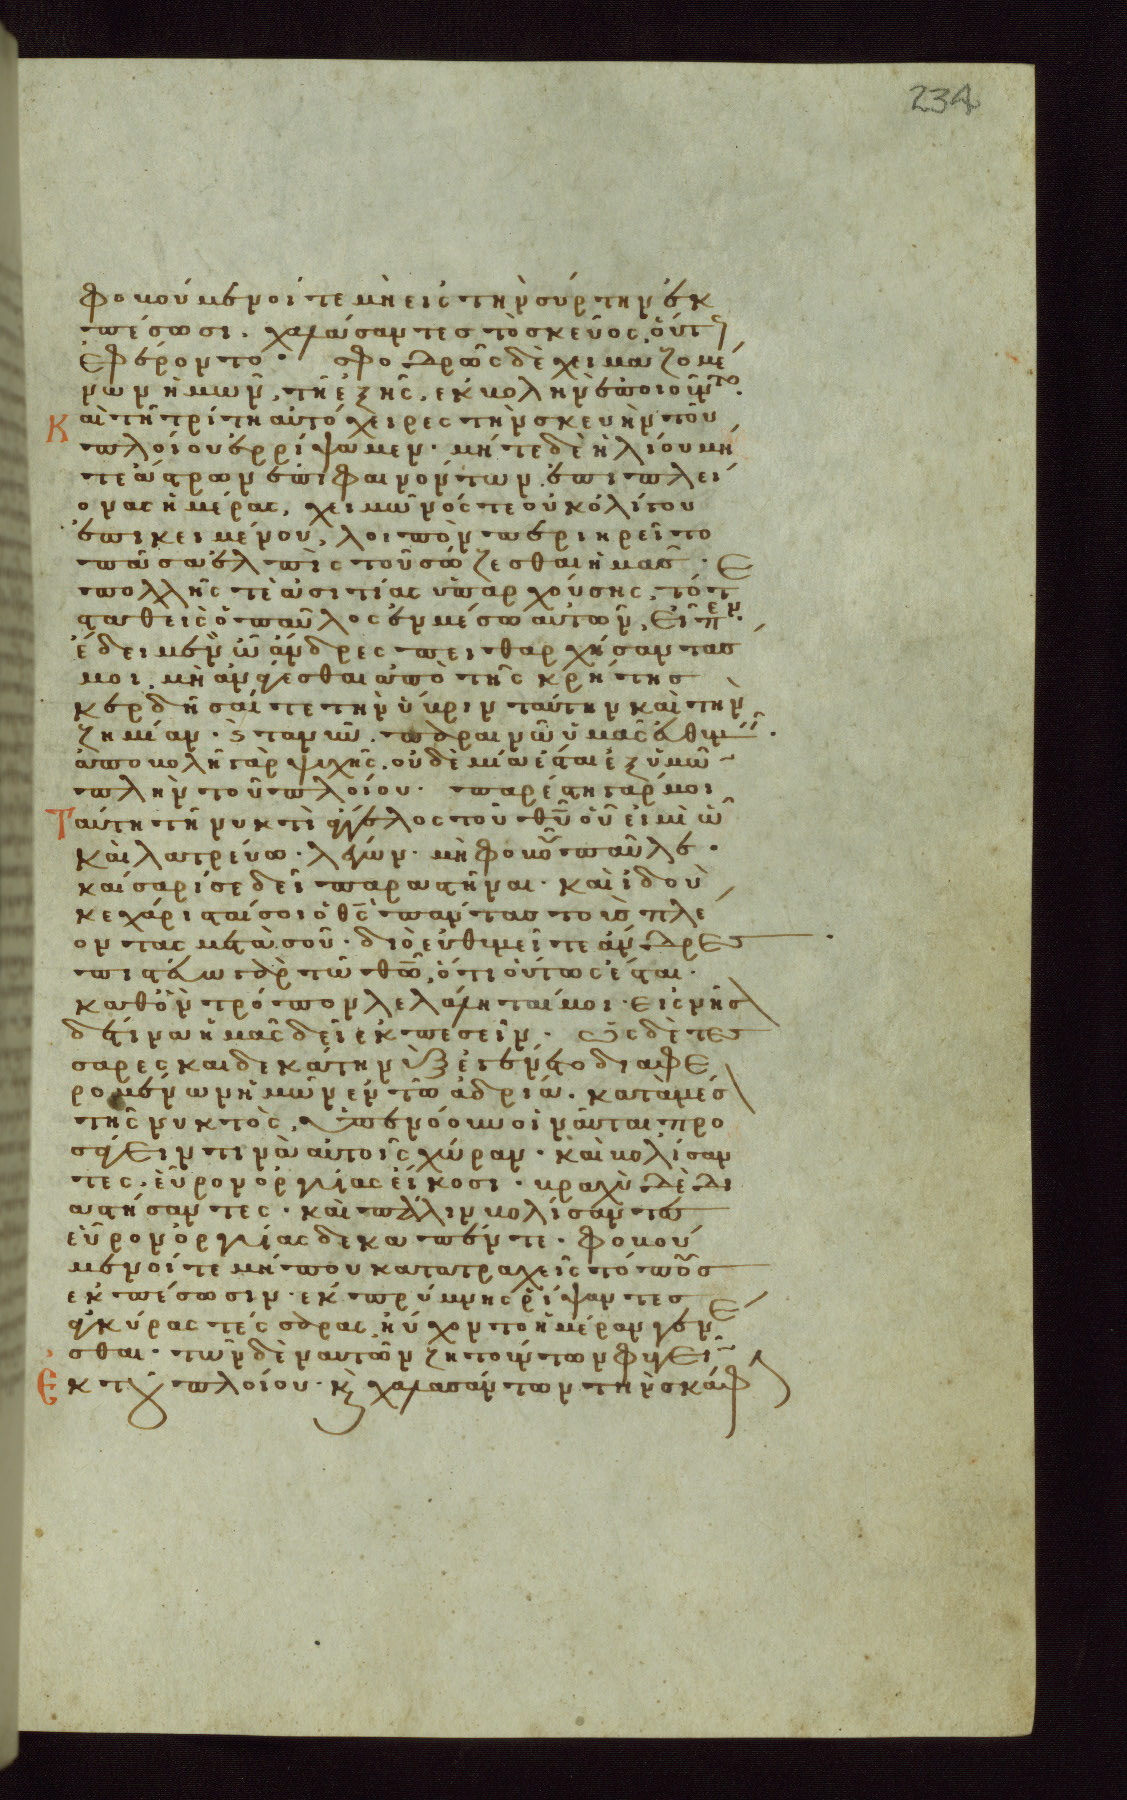 234
φοβούμενοί τε μὴ εἰς τὴν σύρτην ἐκ
πέσωσι. χαλάσαντες τὸ σκεῦος, οὕτως
ἐφέροντο. σφοδρῶς δὲ χειμαζομέ
νων ἡμῶν, τῇ ἑξῆς, ἐκβολὴν ἐποιοῦντο.
Καὶ τῇ τρίτη αὐτόχειρες τὴν σκευὴν τοῦ
πλοίου ἐρρίψαμεν. μήτε δὲ ἡλίου μή
τε ἄστρων ἐπιφαινόντων ἐπι πλεί
ονας ἡμέρας, χειμῶνός τε οὐκ ὀλίγου
ἐπικειμένου, λοιπὸν περιηρεῖτο
πᾶσα ἐλπὶς τοῦ σώζεσθαι ἡμᾶς.
πολλῆς τὲ ἀσιτίας ὑπαρχούσης, τότε
σταθεὶς ὁ παῦλος ἐν μέσω αὐτῶν, εἶπεν.
ἔδει μὲν ὦ ἄνδρες πειθαρχήσαντας
μοι, μὴ ἀνάγεσθαι ἀπὸ τῆς κρήτης
κερδῆσαί τε τὴν ὕβριν ταύτην καὶ τὴν
ζημίαν. καὶ τανῦν παραινῶ ὑμᾶς εὐθυμεῖν.
ἀποβολὴ γὰρ ψυχῆς, οὐδὲ μία ἔσται ἐξ ὑμῶν
πλὴν τοῦ πλοίου. παρέστη γάρ μοι
Ταύτη τῇ νυκτὶ ἄγγελος τοῦ θῦ οὗ εἰμὶ ὧ
καὶ λατρεύω. λέγων. μὴ φοβοῦ παῦλε.
καίσαρί σε δεῖ παραστῆναι. καὶ ἰδοὺ
κεχάρισταί σοι ὁ θς πάντας τοὺς πλέ
οντας μετὰ σοῦ. διὸ εὐθυμεῖτε ἄνδρες
πιστεύω γὰρ τῶ θῶ, ὅτι οὕτως ἔσται.
καθ' ὃν τρόπον λελάληταί μοι. εἰς νῆσ
δέ τινα ἡμᾶς δεῖ ἐκπεσεῖν. Ὡς δὲ τεσ
σαρεσκαιδεκάτη νὺξ ἐγένετο διαφε
ρομένων ἡμῶν ἐν τῶ ἀδρία. κατὰ μέσ
τῆς νυκτὸς, ὑπενόουν οἱ ναῦται προ
σάγειν τινὰ αὐτοῖς χώραν. καὶ βολίσαν
τες, εὗρον ὀργυίας εἴκοσι. βραχὺ δὲ δι
αστήσαντες. καὶ πάλιν βολίσαντες
εὗρον ὀργυίας δεκαπέντε. φοβού
μενοί τε μήπου κατα τραχεῖς τόπους
ἐκπέσωσιν. ἐκ πρύμνης ῥίψαντες
ἀγκύρας τέσσαρας, ηὔχοντο ἡμέραν γενέ
σθαι. τῶν δὲ ναυτῶν ζητούντων φυγεῖν
Ἐκ τοῦ πλοίου. καὶ χαλασάντων τὴν σκάφ